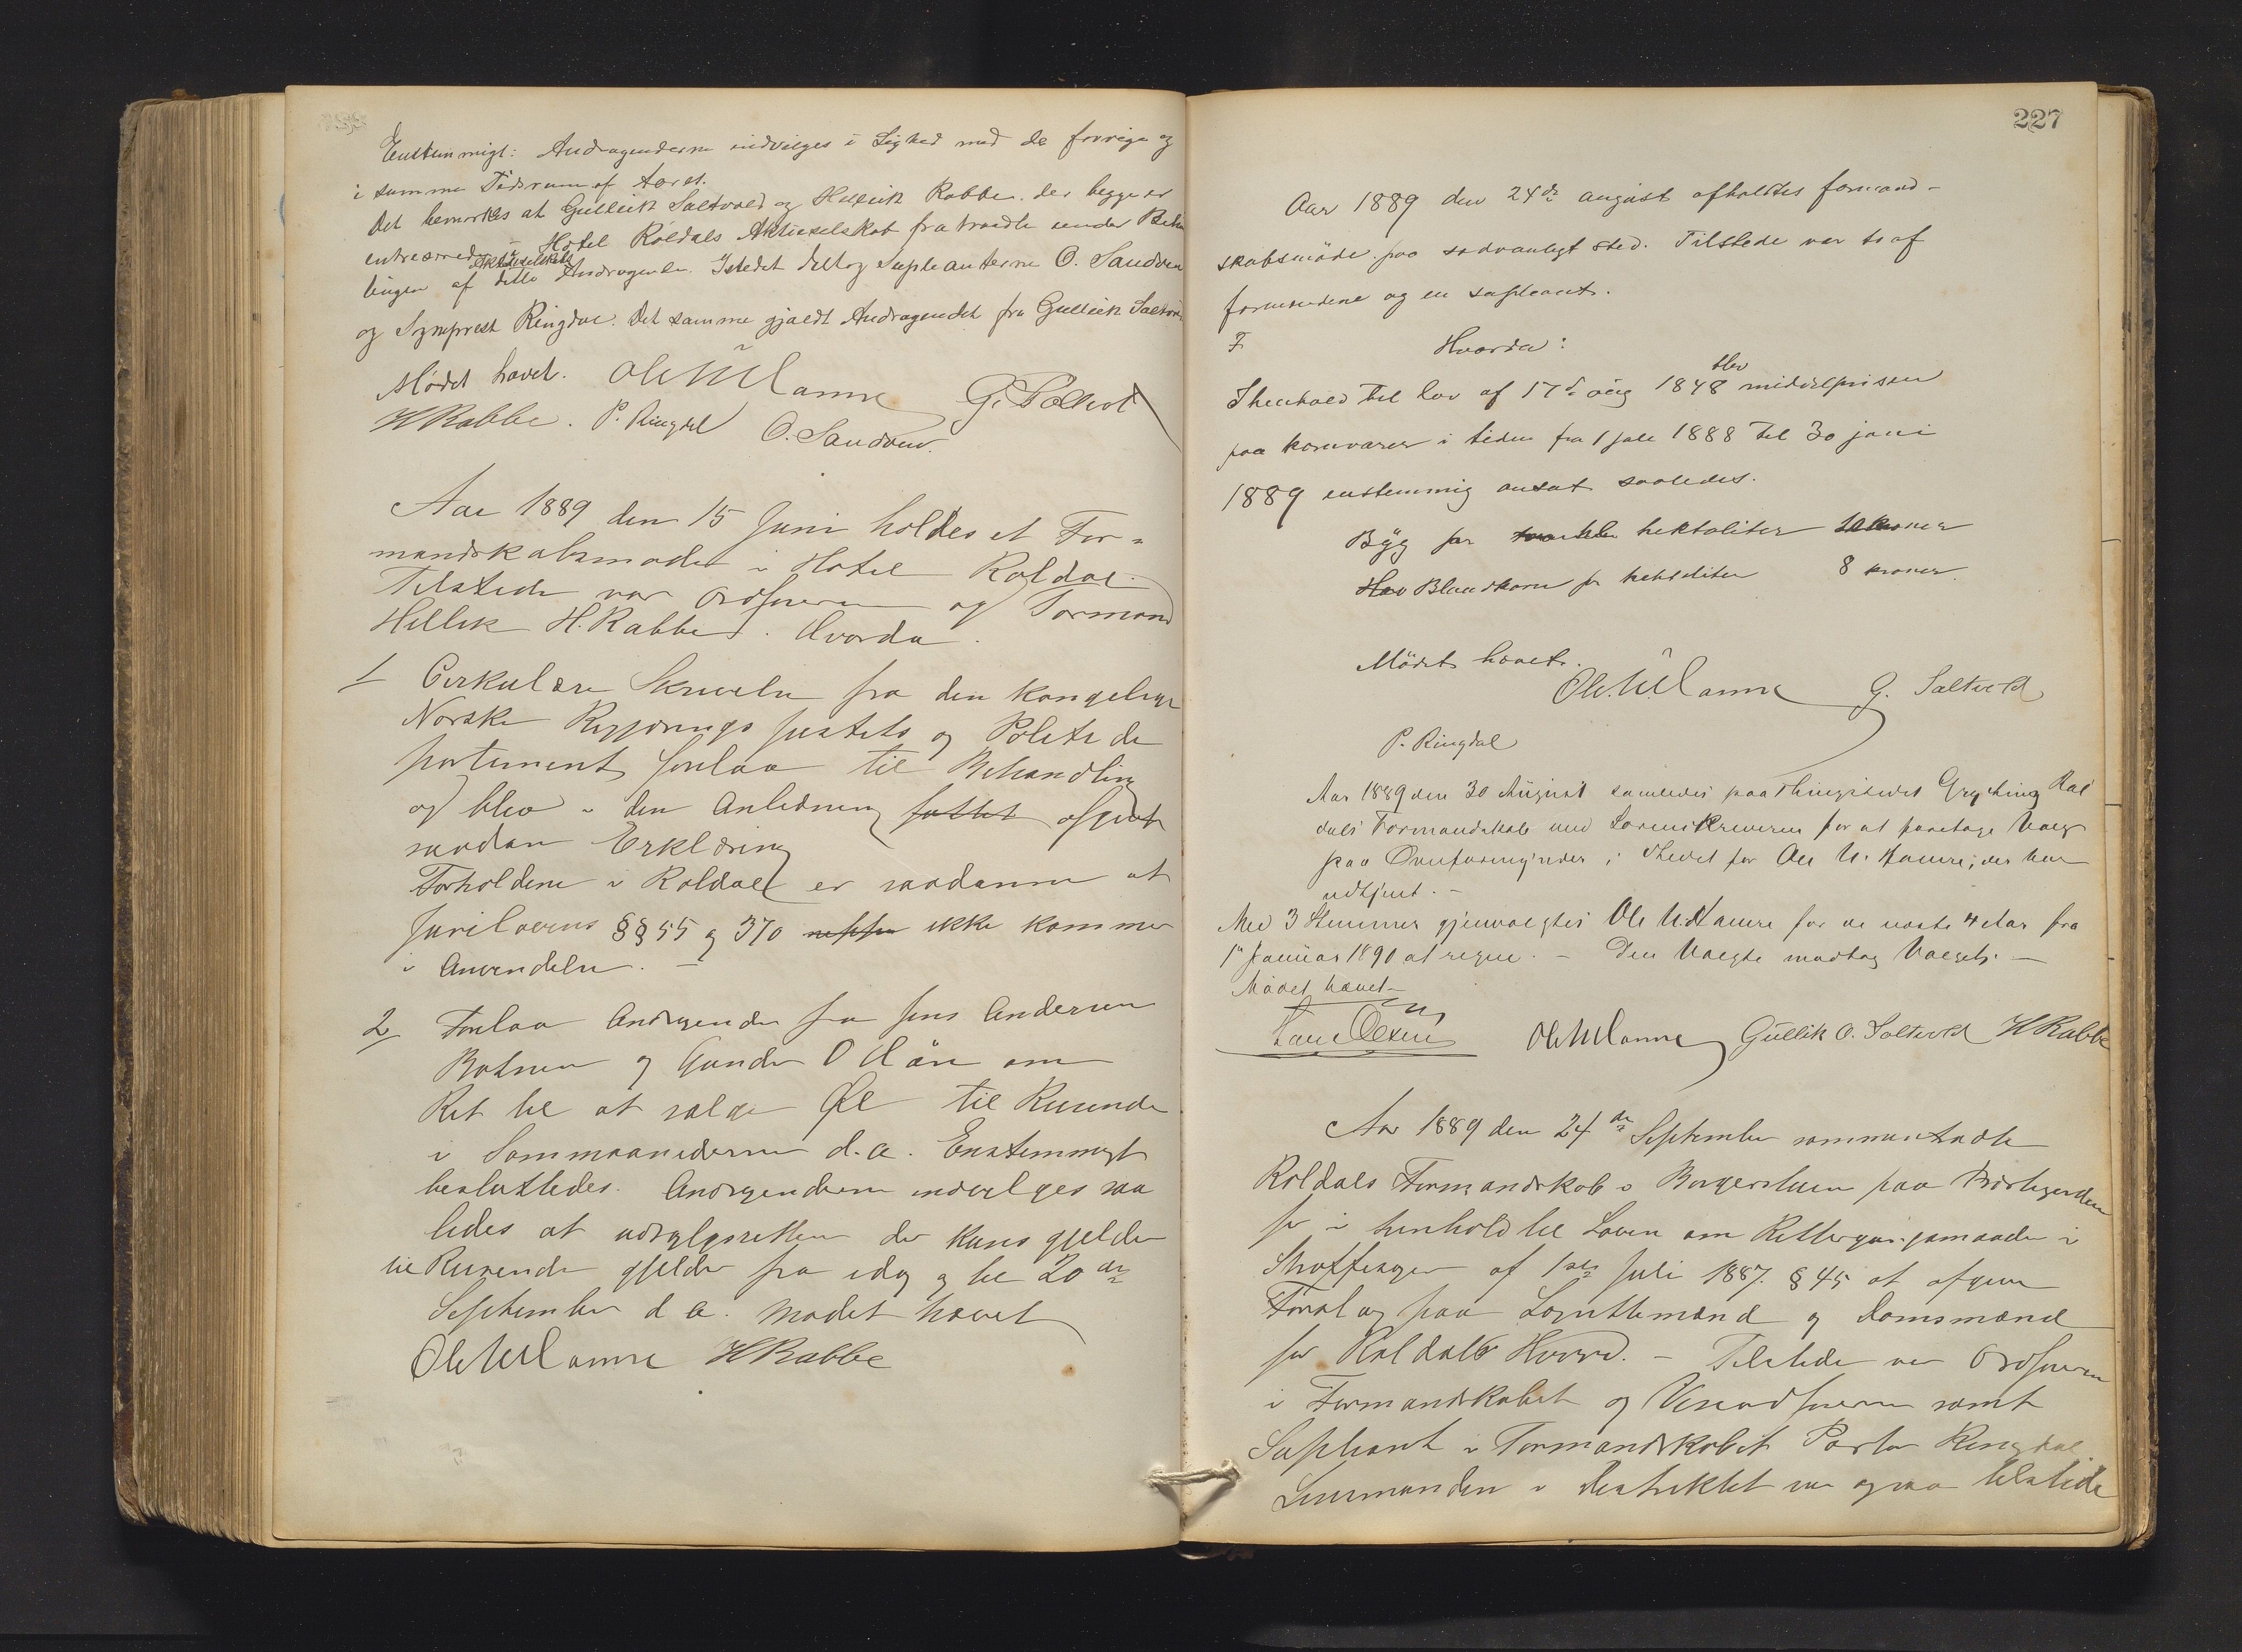 Enstemmigt: Andragenderne indvilges i Lighed med de forrige og
i samme Tidsrum af Aaret.
Det bemærkes at Gulleik Saltvold og Helleik Rabbe der begge er
i Hotel Röldals Aktieselskab fratraadte under
Aktieselskabs
lingen af dette Andragende. Istedet deltog Supleanterne O. Sandven
og Sogneprest Ringdal. Det samme gjaldt Andragendet fra Gulleik Saltvold
Mödet hævet. Ole N Hamre G. Saltvold
H Rabbe. P. Ringdal O. Sandven.
Aar 1889 den 15 Juni holdes et For-
mandskabsmöde i Hotel Roldal.
Tilstede var Ordføreren og Formand
Hellik H. Rabbe. Hvorda.
1 Cirkulære Skrivelse fra den kongelige
Norske Regjerings Justits og Politide
partement forelaa til Behandling
og blev i den Anledning fattet afgivet
saadan Erklæring
Forholdene i Roldal er saadanne at
Jurilovens §§ 55 og 370 neppe ikke kommer
i Anvendelse. —
2 Forelaa Andragende fra Jens Andersen
Botnen og Gunder O Håre om
Ret til at sælge Øl til Reisende
i Sommaanederne d.a. Enstemmigt
besluttedes. Andragenderne indvilges saa
ledes at udsalgsretten der kuns gjelder
til Reisende gjelder fra idag og til 20de
September d a. Mødet hævet
Ole N Hamre H Rabbe
227
Aar 1889 den 24de august afholdtes formand-
skabsmöde paa sædvanligt sted. Tilstede var to af
formændene og en supleant.
F. Hvorda:
blev
I henhold til lov af 17de aug 1848 middelprisen
paa kornvarer i tiden fra 1 juli 1888 til 30 juni
1889 enstemmig ansat saaledes.
Byg pr hektoliter 10 kroner
Hav Blandkorn pr hektoliter 8 kroner.
Mödet hævet.
Ole N. Hamre G. Saltvold
P. Ringdal
Aar 1889 den 30 August samledes paa Thingstedet Gryting Röl
dals Formandskab med Sorenskriveren for at foretage Valg
paa Overformynder i Stedet for Ole N. Hamre, der har
udtjent. —
Med 3 Stemmer gjenvalgtes Ole N. Hamre for de næste 4 Aar fra
1 Januar 1890 at regne. — Den Valgte modtog Valget. —
Mödet hævet —
Ole N Hamre Gullik O. Saltvold H Rabbe
Aar 1889 den 24de September sammentraadte
Roldals Formandskab i Borgerstuen paa Prestegarden
for i henhold til Loven om Rettergangsmaaden i
Straffesager af 1ste Juli 1887 § 45 at afgive
Forslag paa Lagrettemænd og Domsmænd
for Roldals Herred. — Tilstede var Ordføreren
i Formandskabet og Viseordføreren samt
Supleant i Formandskabet Pastor Ringdal.
Lensmanden i Distriktet var ogsaa tilstede